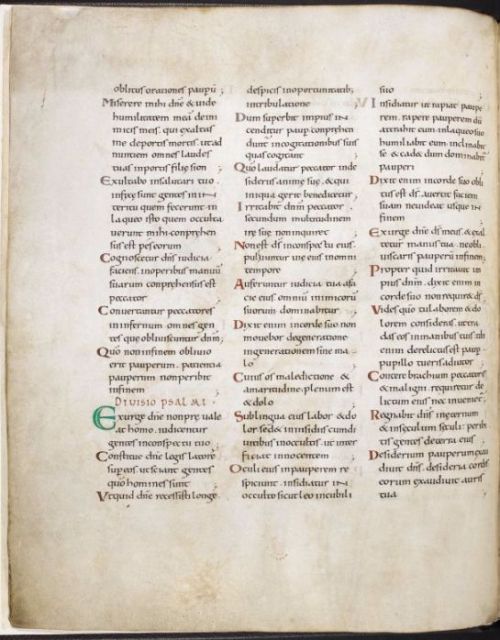 oblitus orationes pauperũ
Miserere mihi dñe & uide
humilitatem meã de ini
micis meis, qui exaltas
me deportis mortis, ut ad
nuntiem omnes laudes
tuas inportis filię sion
Exultabo insalutari tuo,
infixę sunt gentes in in
teritu quem fecerunt In
laqueo isto quem occulta
uerunt mihi conprehen
sus est pes eorum
Cognoscetur dñs iudicia
faciens, inoperibus manuũ
suarum conprehensus est
peccator
Conuertantur peccatores
in infernum, omnes gen
tes que obliuiscuntur dñm,
Quo non infinem obliuio
erit pauperum, patientia
pauperum non peribit
infinem
DIVISIO PSALMI
Exurge dñe non pre uale
at homo, iudicentur
gentes inconspectu tuo
Constitue dñe legis latore
super eos, ut sciant gentes
quo homines sunt
Utquid dñe recessisti longe
despicis inoportunitatib;
intribulatione
Dum superbit impius in
cenditur paup conprehen
dunt incogitationibus suis
quas cogitant
Quo laudatur peccator inde
sideriis animę suę, & qui
iniqua gerit benedicetur,
Irritabit dnm peccator,
secundum multitudinem
irę suę non inquiret
Non est ds inconspectu eius,
polluuntur uię eius inomni
tempore
Auferuntur iudicia tua afa
cie eius, omniũ inimicorũ
suorum dominabitur
Dixit enim incorde suo non
mouebor degeneratione
ingenerationem sine ma
lo
Cuius os maledictione &
amaritudine plenum est
& dolo
Sublingua eius labor & do
lor sed& in insidiis cumdi
uitibus inoccultis, ut inter
ficiat innocentem
Oculi eius in pauperem re
spiciunt, insidiatur in
occulto sicut leo incubili
suo
Insidiatur ut rapiat paupe
rem, rapere pauperem dũ
attrahit eum, in laqueo suo
humiliabit eum, inclinabit
se & cadet dum dominabit
pauperi
Dixit enim incorde suo obli
tus est ds, auertit faciem
suam ne uideat usque in
finem
Exurge dñe ds meus & exal
tetur manus tua, ne obli
uiscaris pauperũ infinem,
Propter quid irritauit im
pius dnm, dixit enim in
corde suo non requir& ds
Uides quo tu laborem & do
lorem consideras, ut tra
das eos in manibus tuis tibi
enim derelictus est paup
pupillo tu eris adiutor
Contere brachium peccatoris
& maligni, requiretur de
lictum eius nec inuenietur
Regnabit dñs ineternum
& insęculum sęculi, peribi
tis gentes deterra eius
Desiderium pauperum exau
diuit dñs, desideria cordis
eorum exaudiuit auris
tua